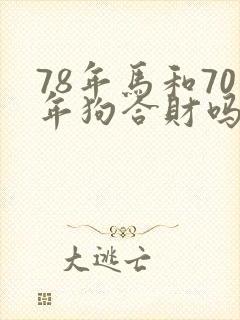 78年馬和70
年狗合財吗
大逃亡